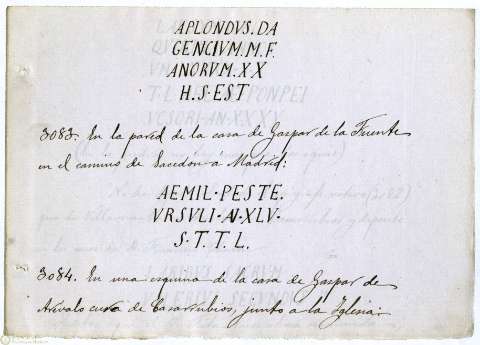 APLONDVS. DA
GENCIVM. M. F.
ANORVM. XX
H. S. EST
3083. En la pared de la casa de Gaspar de la Fuente
en el camino de Sacedon a Madrid:
AEMIL·PESTE.
VRSVLI·AI·XLV·
S·T.T.L.
3084. En una esquina de la casa de Gaspar de
Arévalo cura de Casarrubios, junto a la Iglesia: